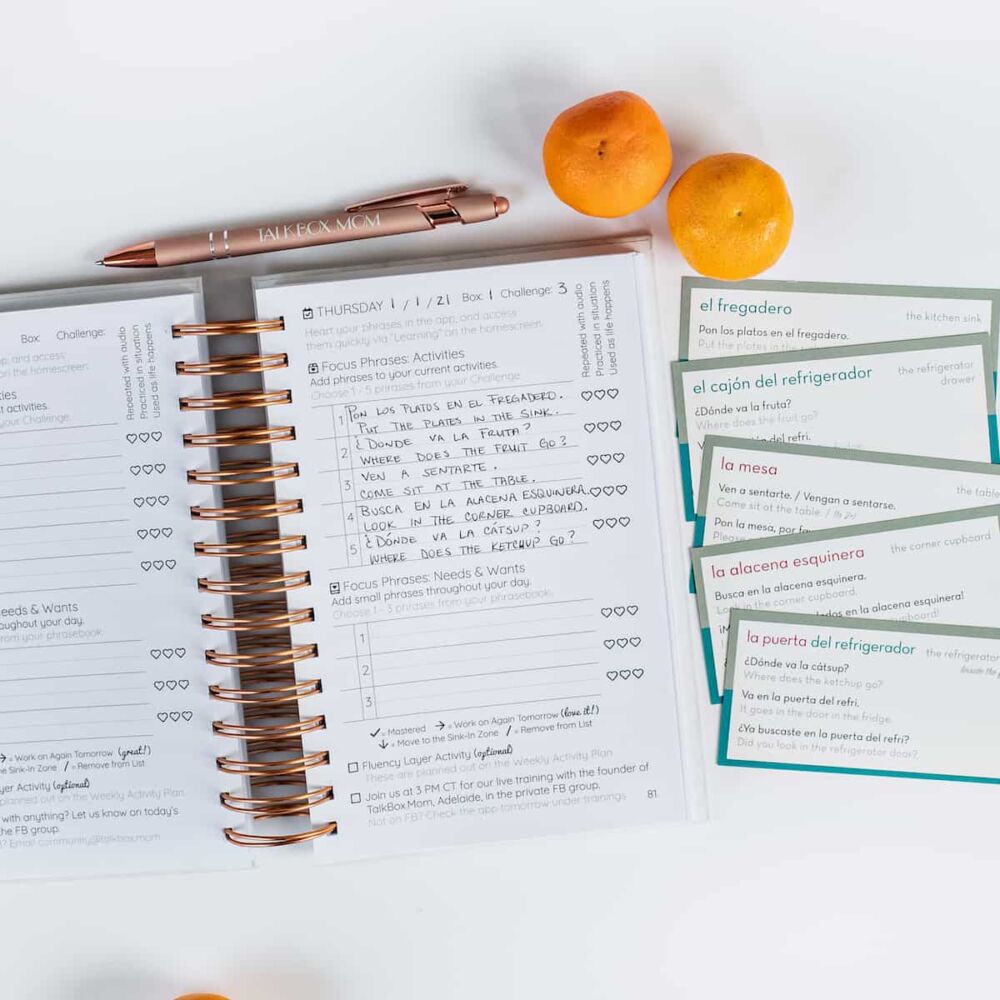 TALKBOX MOM
Box: Challenge:
Repeated with audio
Practiced in situation
Used as life happens
pp, and access
on the homescreen.
ties
t activities.
your Challenge.
Needs & Wants
roughout your day.
rom your phrasebook.
→ = Work on Again Tomorrow (great!)
he Sink-In Zone / = Remove from List
ayer Activity (optional)
planned out on the Weekly Activity Plan.
with anything? Let us know on today's
he FB group.
? Email community@talkbox.mom
THURSDAY 1 / 1 / 21 Box: 1 Challenge: 3
Heart your phrases in the app, and access
them quickly via "Learning" on the homescreen.
Repeated with audio
Practiced in situation
Used as life happens
Focus Phrases: Activities
Add phrases to your current activities.
Choose 1 - 5 phrases from your Challenge.
1 PON LOS PLATOS EN EL FREGADERO.
PUT THE PLATES IN THE SINK.
2 ¿DONDE VA LA FRUTA?
WHERE DOES THE FRUIT GO?
3 VEN A SENTARTE.
COME SIT AT THE TABLE.
4 BUSCA EN LA ALACENA ESQUINERA.
LOOK IN THE CORNER CUPBOARD.
5 ¿DÓNDE VA LA CÁTSUP?
WHERE DOES THE KETCHUP GO?
Focus Phrases: Needs & Wants
Add small phrases throughout your day.
Choose 1 - 3 phrases from your phrasebook.
1
2
3
✓ = Mastered → = Work on Again Tomorrow (love it!)
↓ = Move to the Sink-In Zone / = Remove from List
Fluency Layer Activity (optional)
These are planned out on the Weekly Activity Plan
Join us at 3 PM CT for our live training with the founder of
TalkBox.Mom, Adelaide, in the private FB group.
Not on FB? Check the app tomorrow under trainings
81
el fregadero the kitchen sink
Pon los platos en el fregadero.
Put the plates in the sink.
el cajón del refrigerador the refrigerator
drawer
¿Dónde va la fruta?
Where does the fruit go?
del refri.
la mesa the table
Ven a sentarte. / Vengan a sentarse.
Come sit at the table.
Pon la mesa, por
la alacena esquinera the corner cupboard
Busca en la alacena esquinera.
Look in the corner cupboard.
en la alacena esquinera!
cupboard!
la puerta del refrigerador the refrigerator
inside the
¿Dónde va la cátsup?
Where does the ketchup go?
Va en la puerta del refri.
It goes in the door in the fridge.
¿Ya buscaste en la puerta del refri?
Did you look in the refrigerator door?